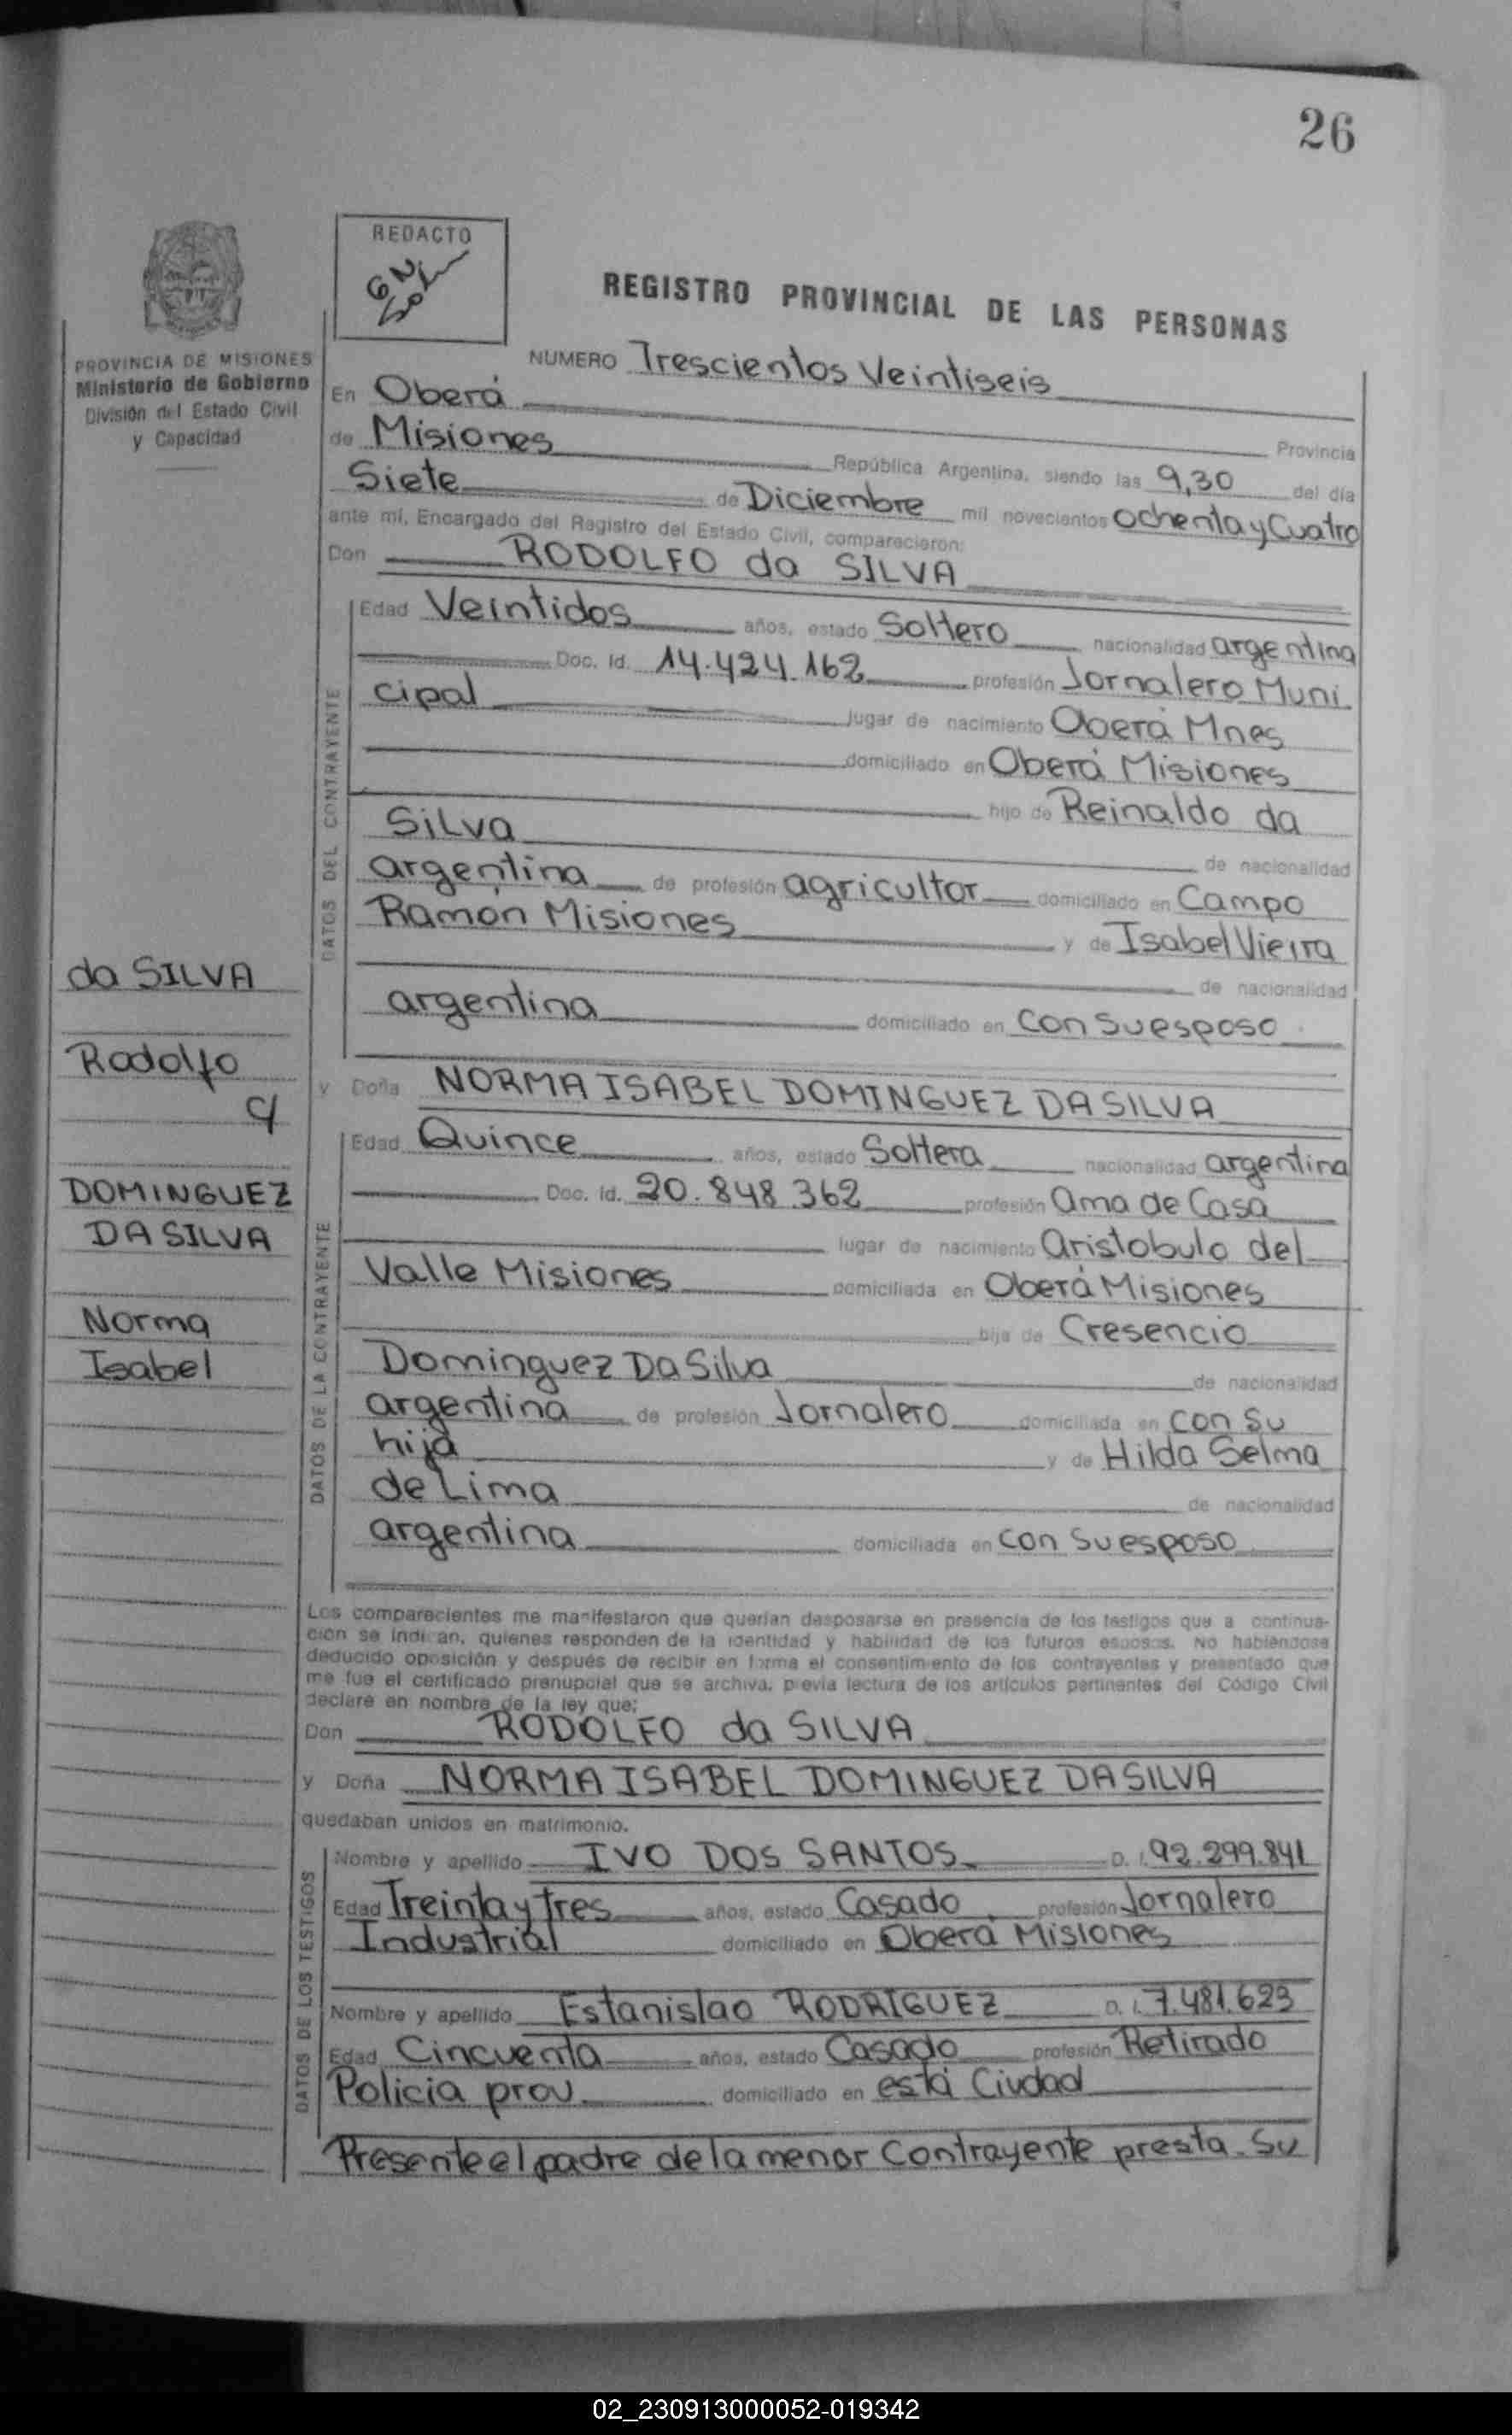 26
REDACTO
REGISTRO PROVINCIAL DE LAS PERSONAS
PROVINCIA DE MISIONES
Ministerio de Gobierno
División del Estado Civil
y Capacidad
NUMERO Trescientos Veintiseis
En Oberá
Provincia
de Misiones República Argentina, siendo las 9,30 del día
Siete de Diciembre mil novecientos ochenta y Cuatro
ante mí, Encargado del Registro del Estado Civil, comparecieron:
Don RODOLFO da SILVA
DATOS DEL CONTRAYENTE
Edad Veintidos años, estado Soltero nacionalidad argentina
Doc. Id. 14.424.162 profesión Jornalero Muni
cipal lugar de nacimiento Oberá Mnes
domiciliado en Oberá Misiones
hijo de Reinaldo da
Silva de nacionalidad
argentina de profesión agricultor domiciliado en Campo
Ramón Misiones y de Isabel Vieira
de nacionalidad
argentina domiciliado en con su esposo
da SILVA
Rodolfo
c/
DOMINGUEZ
DA SILVA
Norma
Isabel
y Doña NORMA ISABEL DOMINGUEZ DA SILVA
DATOS DE LA CONTRAYENTE
Edad Quince años, estado Soltera nacionalidad argentina
Doc. Id. 20.848.362 profesión ama de Casa
lugar de nacimiento aristobulo del
Valle Misiones domiciliada en Oberá Misiones
hija de Cresencio
Dominguez Da Silva de nacionalidad
argentina de profesión Jornalero domiciliada en con su
hija y de Hilda Selma
de Lima de nacionalidad
argentina domiciliada en con su esposo
Los comparecientes me manifestaron que querían desposarse en presencia de los testigos que a continua-
ción se indican, quienes responden de la identidad y habilidad de los futuros esposos. No habiéndose
deducido oposición y después de recibir en forma el consentimiento de los contrayentes y presentado que
me fue el certificado prenupcial que se archiva, previa lectura de los artículos pertinentes del Código Civil
declaré en nombre de la ley que:
Don RODOLFO da SILVA
y Doña NORMA ISABEL DOMINGUEZ DA SILVA
quedaban unidos en matrimonio.
DATOS DE LOS TESTIGOS
Nombre y apellido IVO DOS SANTOS D. I. 92.299.841
Edad Treinta y tres años, estado Casado profesión Jornalero
Industrial domiciliado en Oberá Misiones
Nombre y apellido Estanislao RODRIGUEZ D. I. 7.481.623
Edad Cincuenta años, estado Casado profesión Retirado
Policia prov domiciliado en está Ciudad
Presente el padre de la menor contrayente presta su
02_230913000052-019342